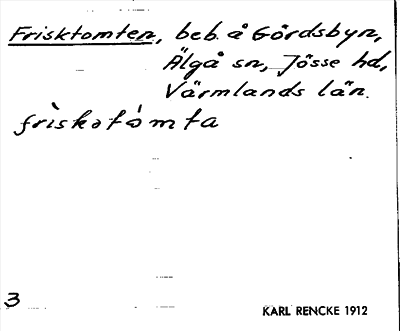 Frisktomten, beb. å Gördsbyn,
Älgå sn, Jösse hd,
Värmlands län.
frìskotómta
3
KARL RENCKE 1912